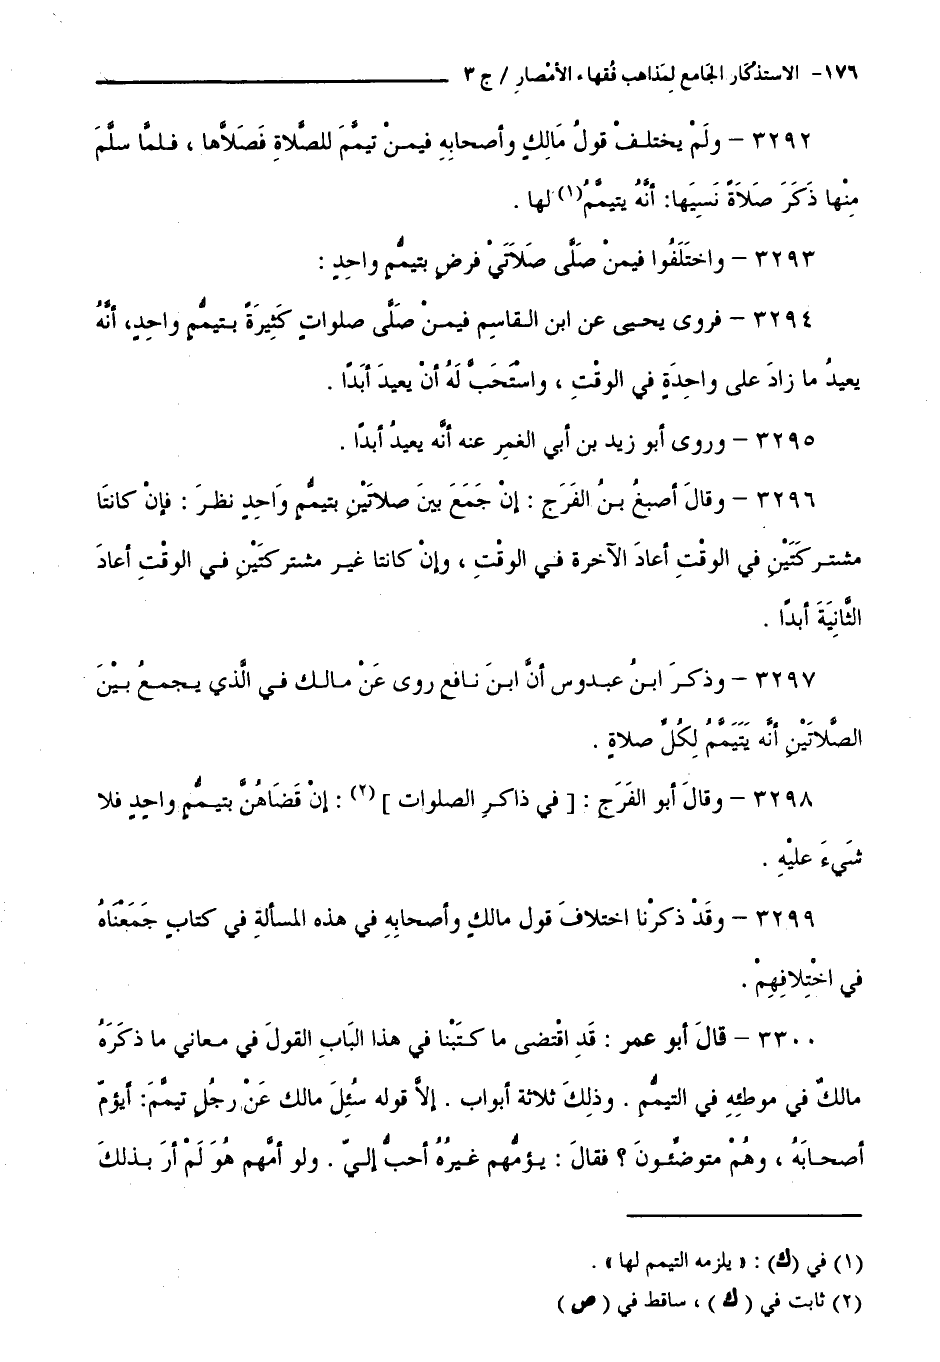 ١٧٦- الاستذكار الجامع لمذاهب فقهاء الأمْصارِ / ج ٣
٣٢٩٢ – ولَمْ يختلفْ قولُ مَالِكٍ وأصحابِهِ فيمنْ تيمَّمَ للصَّلاةِ فَصَلاَّها ، فلمَّا سلَّمَ
مِنْها ذَكَرَ صَلاَةً نَسِيَها: أنَّهُ يتيمَّمُ(١) لها .
٣٢٩٣ – واختَلَفُوا فيمنْ صَلَّى صَلاَتَيْ فرضٍ بتيمُّمٍ واحِدٍ :
٣٢٩٤ – فروى يحيى عن ابن القاسِمِ فيمنْ صَلَّى صلواتٍ كَثِيرَةً بتيمُّمٍ واحِدٍ، أنَّهُ
يعيدُ ما زادَ على واحِدَةٍ في الوقْتِ ، واسْتَحَبَّ لَهُ أنْ يعيدَ أبَدًا .
٣٢٩٥ – وروى أبو زيد بن أبي الغمرِ عنه أنَّه يعيدُ أبدًا .
٣٢٩٦ – وقالَ أصبغُ بنُ الفَرَجِ : إنْ جَمَعَ بينَ صلاتَيْنِ بتيمُّمٍ وَاحِدٍ نظرَ : فإنْ كانتَا
مشتركَتَيْنِ في الوقْتِ أعادَ الآخرة في الوقْتِ ، وإنْ كانتا غير مشتركَتَيْنِ في الوقْتِ أعادَ
الثَّانِيَةَ أبدًا .
٣٢٩٧ – وذكرَ ابنُ عبدوس أنَّ ابنَ نافعٍ روى عَنْ مالك في الَّذي يجمعُ بَيْنَ
الصَّلاتَيْنِ أنَّه يَتَيَمَّمُ لِكُلِّ صلاةٍ .
٣٢٩٨ – وقالَ أبو الفَرَجِ : [ في ذاكرِ الصلوات ] (٢) : إنْ قَضَاهُنَّ بتيمُّمٍ واحِدٍ فلا
شَيءَ عليْهِ .
٣٢٩٩ – وقَدْ ذكرْنا اختلافَ قول مالكٍ وأصحابِهِ في هذه المسألةِ في كتابٍ جَمَعْنَاهُ
في اخْتِلافِهِمْ .
٣٣٠٠ – قالَ أبو عمر : قَدِ اقْتضى ما كتَبْنا في هذا البَابِ القولَ في معاني ما ذكَرَهُ
مالكٌ في موطئِهِ في التيمُّمِ . وذلِكَ ثلاثة أبواب . إلاَّ قوله سئِلَ مالك عَنْ رجُلٍ تيمَّمَ: أيؤمّ
أصحابَهُ ، وهُمْ متوضِّئونَ ؟ فقالَ : يؤمُّهم غيرُهُ أحبُّ إليّ . ولو أمَّهم هُوَ لَمْ أرَ بذلكَ
(١) في (ك) : « يلزمه التيمم لها » .
(٢) ثابت في ( ك ) ، ساقط في ( ص )